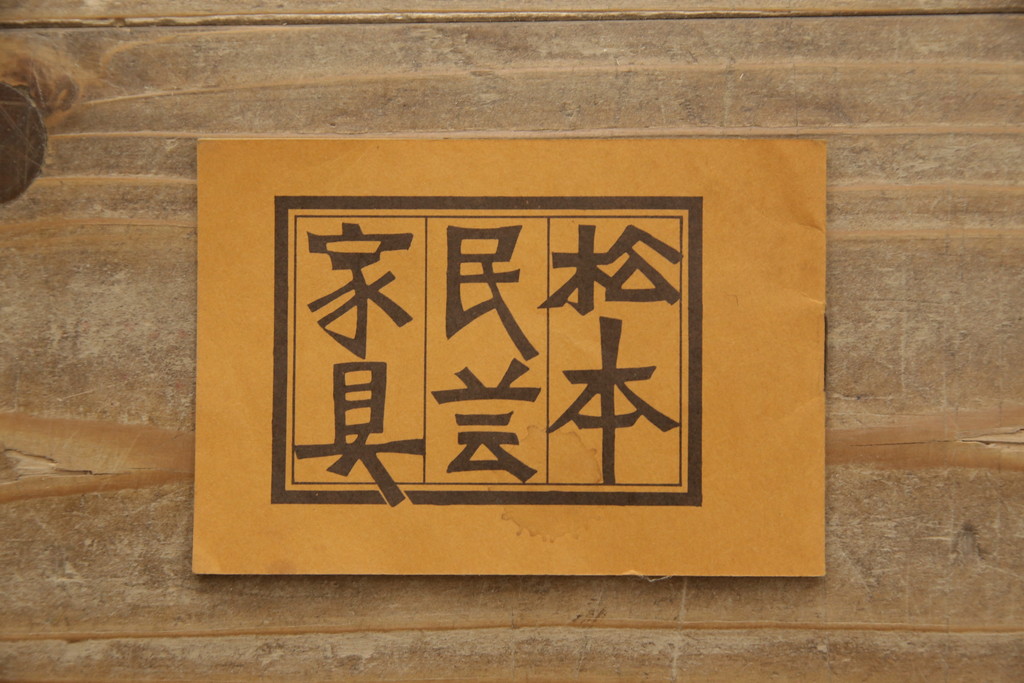 松本
民芸
家具